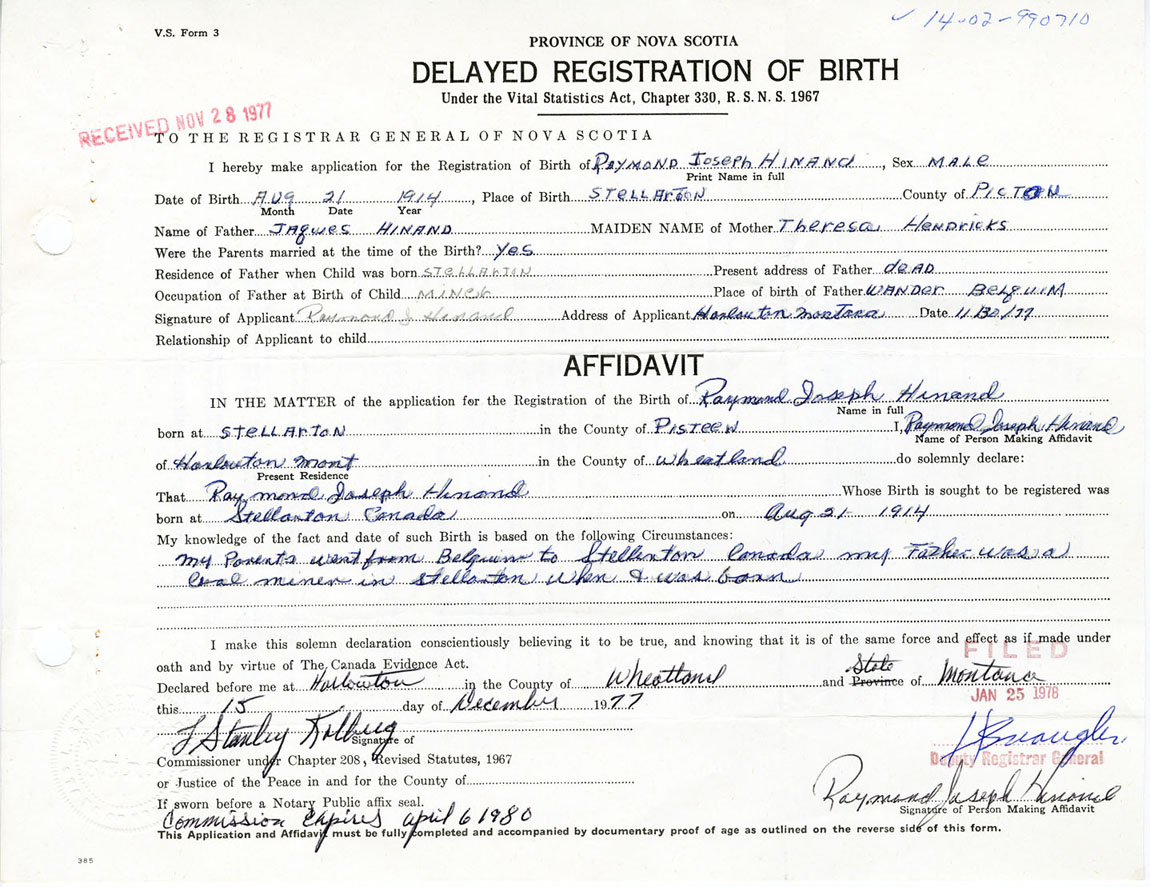 ✓ 14-02-990710
V.S. Form 3
PROVINCE OF NOVA SCOTIA
DELAYED REGISTRATION OF BIRTH
Under the Vital Statistics Act, Chapter 330, R.S.N.S. 1967
RECEIVED NOV 28 1977
TO THE REGISTRAR GENERAL OF NOVA SCOTIA
I hereby make application for the Registration of Birth of RAYMOND JOSEPH HINAND, Sex MALE
Print Name in full
Date of Birth AUG 21 1914, Place of Birth STELLARTON County of PICTON
Month Date Year
Name of Father JAQUES HINAND MAIDEN NAME of Mother Theresa HENDRICKS
Were the Parents married at the time of the Birth? Yes
Residence of Father when Child was born STELLARTON Present address of Father dEAD
Occupation of Father at Birth of Child MINER Place of birth of Father WANDER BELGUIM
Signature of Applicant Raymond J Hinand Address of Applicant Harlowton Montana Date 11/30/77
Relationship of Applicant to child
AFFIDAVIT
IN THE MATTER of the application for the Registration of the Birth of Raymond Joseph Hinand
Name in full
born at STELLARTON in the County of PISTEEN I, Raymond Joseph Hinand
Name of Person Making Affidavit
of Harlowton Mont in the County of Wheatland do solemnly declare:
Present Residence
That Raymond Joseph Hinand Whose Birth is sought to be registered was
born at Stellarton Canada on Aug 21 1914
My knowledge of the fact and date of such Birth is based on the following Circumstances:
My Parents went from Belguim to Stellerton Canada my Father was a
Coal miner in Stellarton when I was born
I make this solemn declaration conscientiously believing it to be true, and knowing that it is of the same force and effect as if made under
oath and by virtue of The Canada Evidence Act.
FILED
Declared before me at Harlowton in the County of Wheatland and Province State of Montana
JAN 25 1978
this 15 day of December 1977
J Stanley Kolberg
Signature of
Commissioner under Chapter 208, Revised Statutes, 1967
Deputy Registrar General
or Justice of the Peace in and for the County of
Raymond Joseph Hinand
Signature of Person Making Affidavit
If sworn before a Notary Public affix seal.
Commission expires april 6 1980
This Application and Affidavit must be fully completed and accompanied by documentary proof of age as outlined on the reverse side of this form.
385